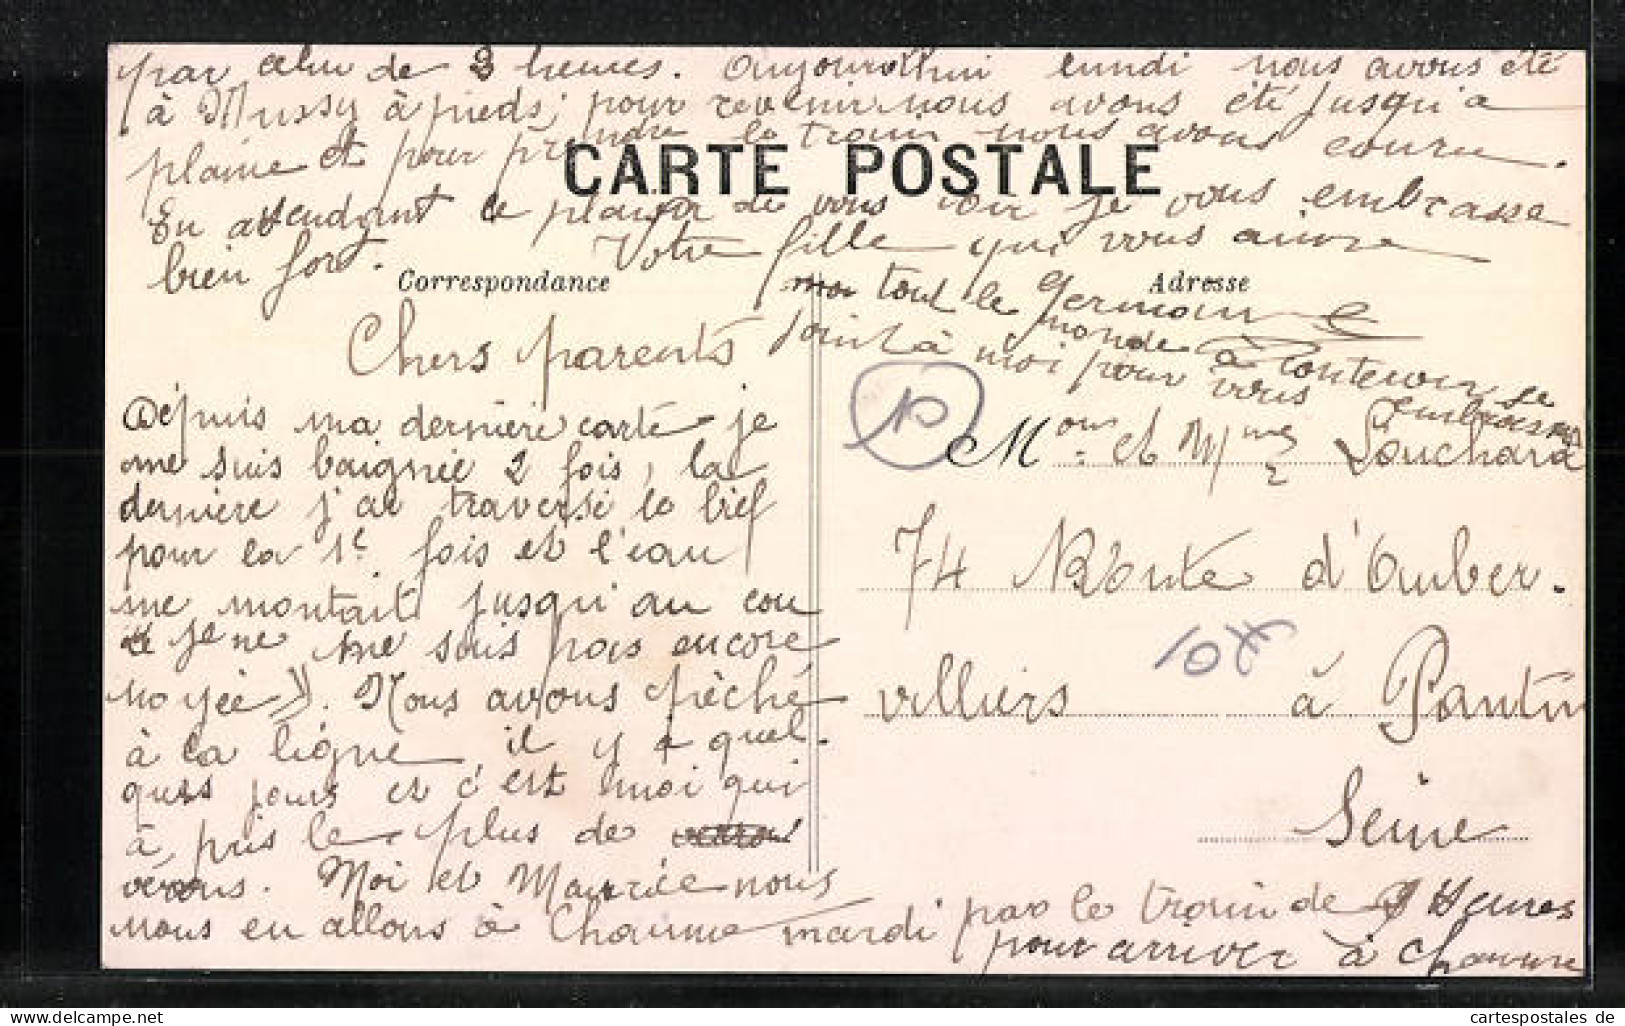 par celui de 3 heures. Aujourd'hui lundi nous avons été
à Mussy à pieds, pour revenir nous avons été jusqu'a
plaine et pour prendre le train nous avons courru.
En attendant le plaisir de vous voir je vous embrasse
bien fort. Votre fille qui vous aime
Germaine
CARTE POSTALE
Correspondance
Adresse
tout le monde à
joint à moi pour vous embrasser
Chers parents
Dépuis ma dernière carte je
me suis baignée 2 fois, la
dernière j'ai traversé le bief
pour la 1e fois et l'eau
me montait jusqu'au cou
je ne me suis pas encore
noyée". Nous avons pèché
à la ligne, il y a quel-
ques jours et c'est moi qui
à pris le plus de
vérons. Moi et Maurice nous
nous en allons à Chaume mardi par le train de 9 Heures
pour arriver à Chaume
Mons. et Mme Louchard
74 Route d'Auber-
villiers à Pantin
Seine
10
cartespostales de